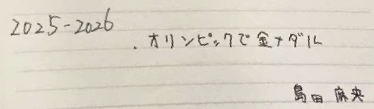 2025-2026
・オリンピックで金メダル
島田 麻央